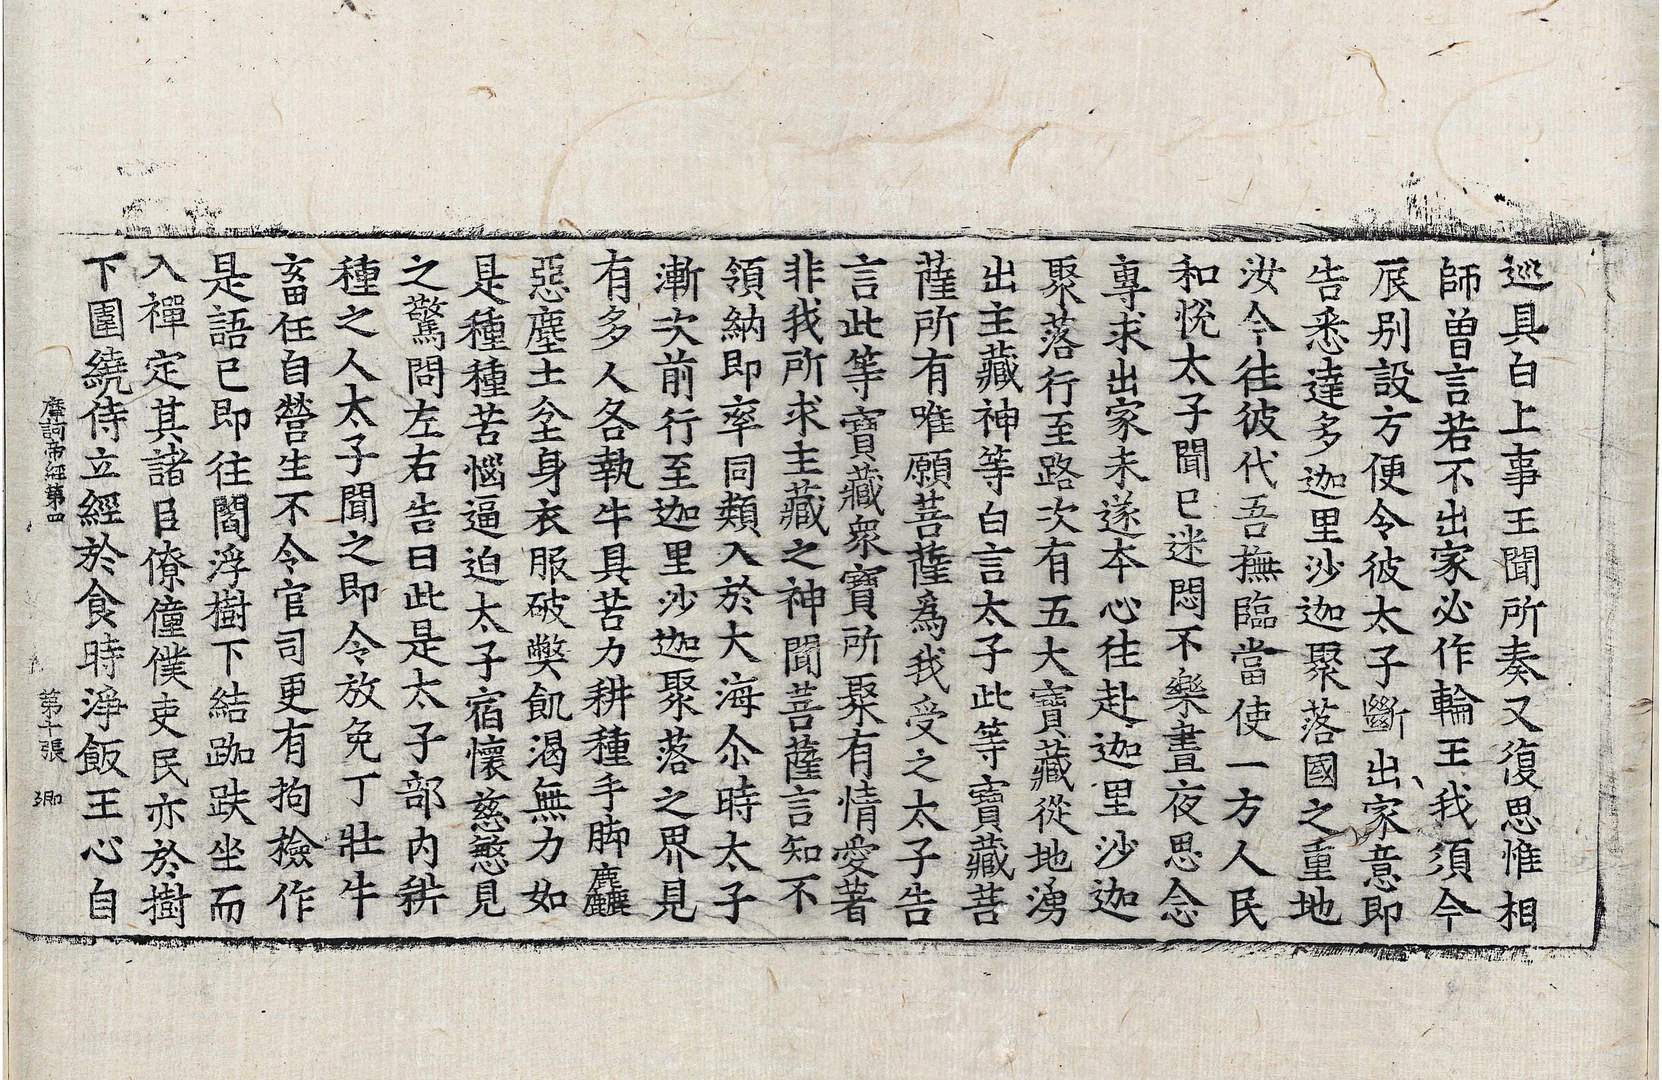 巡具白上事王聞所奏又復思惟相
師曾言若不出家必作輪王我須今
辰別設方便令彼太子斷出家意即
告悉達多迦里沙迦聚落國之重地
汝今往彼代吾撫臨當使一方人民
和悅太子聞已迷悶不樂晝夜思念
專求出家未遂本心往赴迦里沙迦
聚落行至路次有五大寶藏從地湧
出主藏神等白言太子此等寶藏菩
薩所有唯願菩薩為我受之太子告
言此等寶藏衆寶所聚有情愛著
非我所求主藏之神聞菩薩言知不
領納即率同類入於大海尒時太子
漸次前行至迦里沙迦聚落之界見
有多人各執牛具苦力耕種手脚麁
惡塵土坌身衣服破弊飢渴無力如
是種種苦惱逼迫太子宿懷慈愍見
之驚問左右告曰此是太子部內耕
種之人太子聞之即令放免丁壯牛
畜任自營生不令官司更有拘撿作
是語已即往閻浮樹下結跏趺坐而
入禪定其諸臣僚僮僕吏民亦於樹
下圍繞侍立經於食時淨飯王心自
摩訶帝經第四 第十張 卿